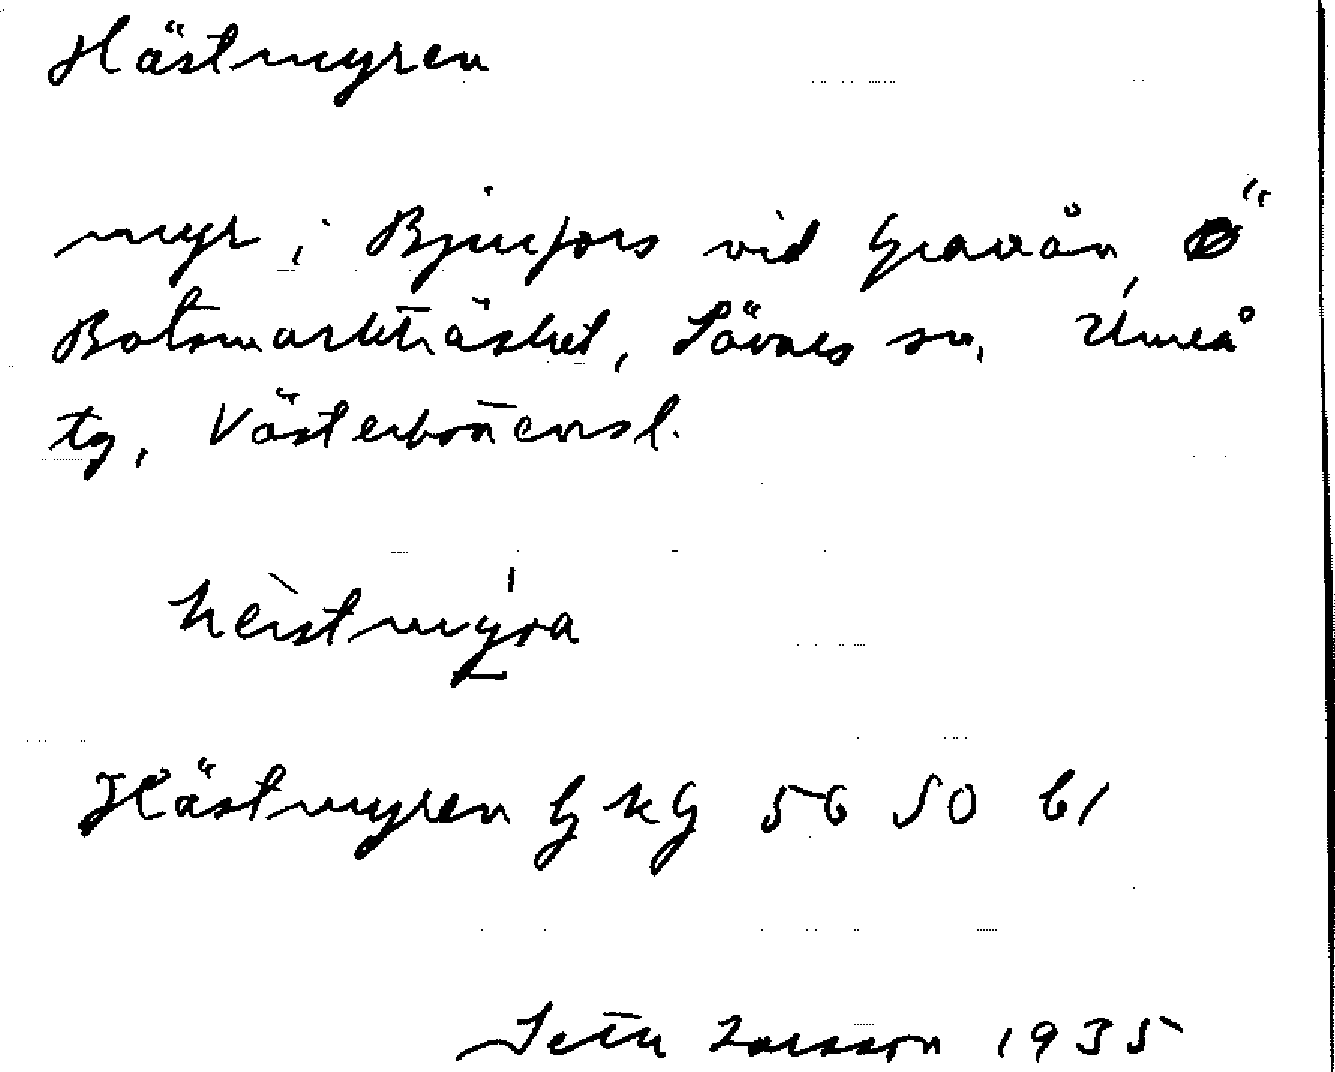 Hästmyren
myr i Bjurfors vid Gravån, Ö
Botsmarkträsket, Sävars sn, Umeå
tg, Västerbottensl.
hèistmy̲ra
Hästmyren GKG 56 50 61
Larsson 1935